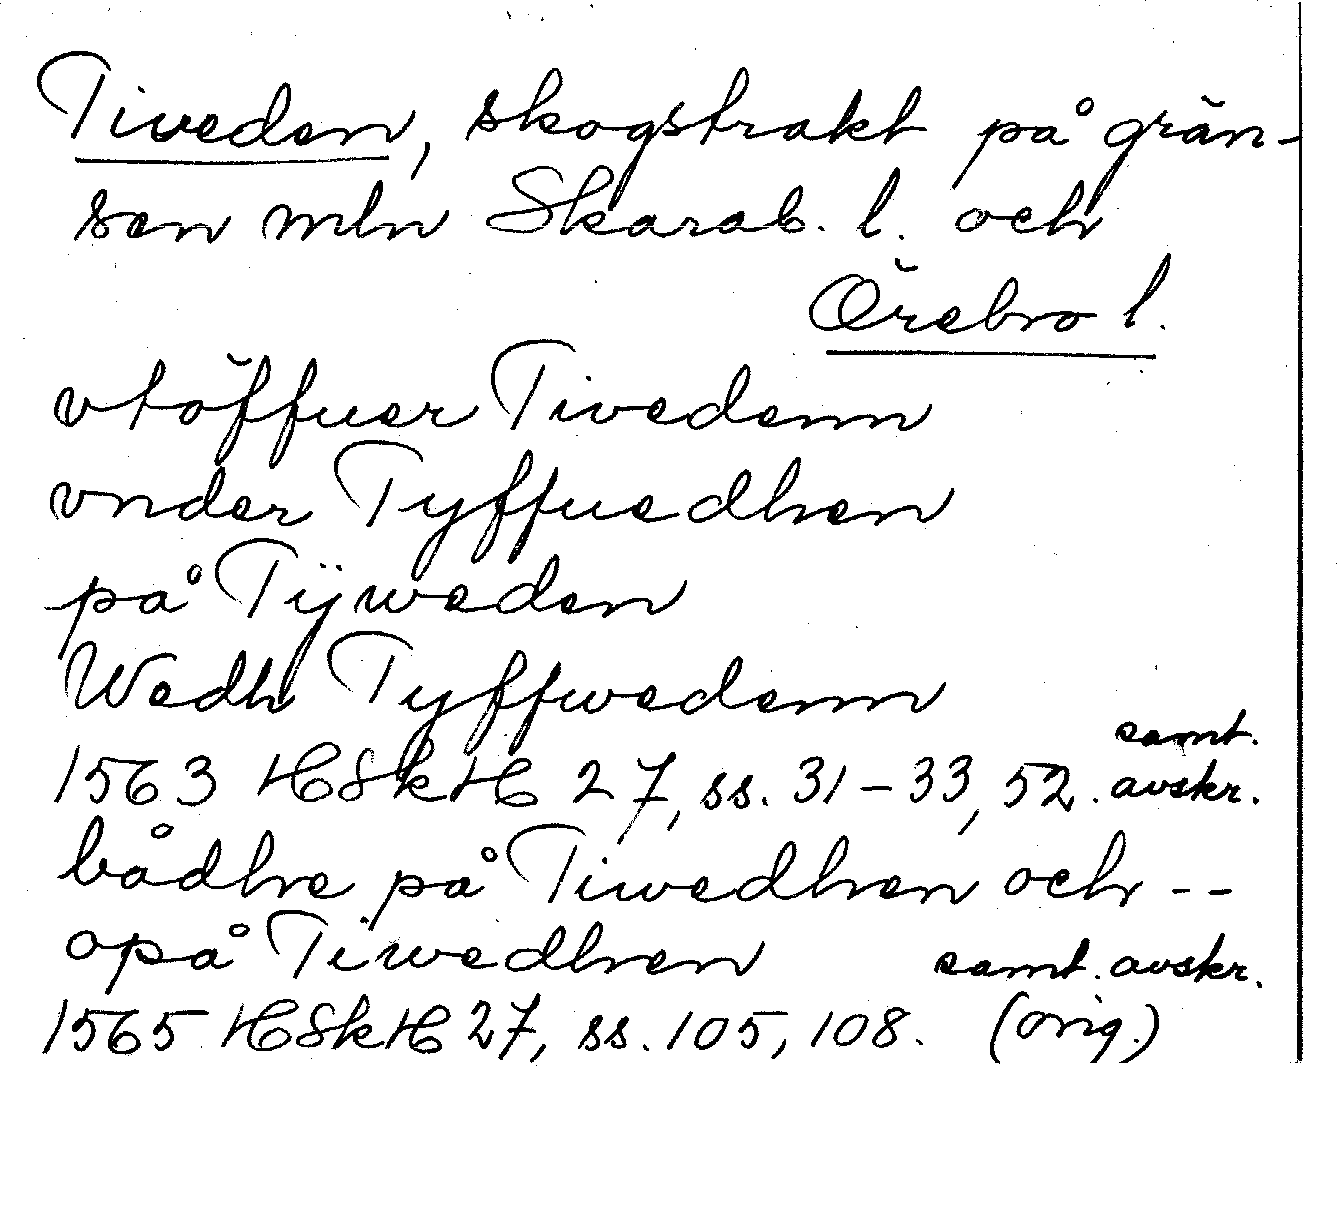 Tiveden, skogstrakt på grän-
sen mln Skarab. l. och
Örebro l.
vtöffuer Tivedenn
vnder Tyffuedhen
på Tijweden
Wedh Tyffwedenn
samt.
1563 HSkH 27, ss. 31-33, 52. avskr.
bådhe på Tiwedhen och --
opå Tiwedhen samt. avskr.
1565 HSkH 27, ss. 105, 108. (orig.)